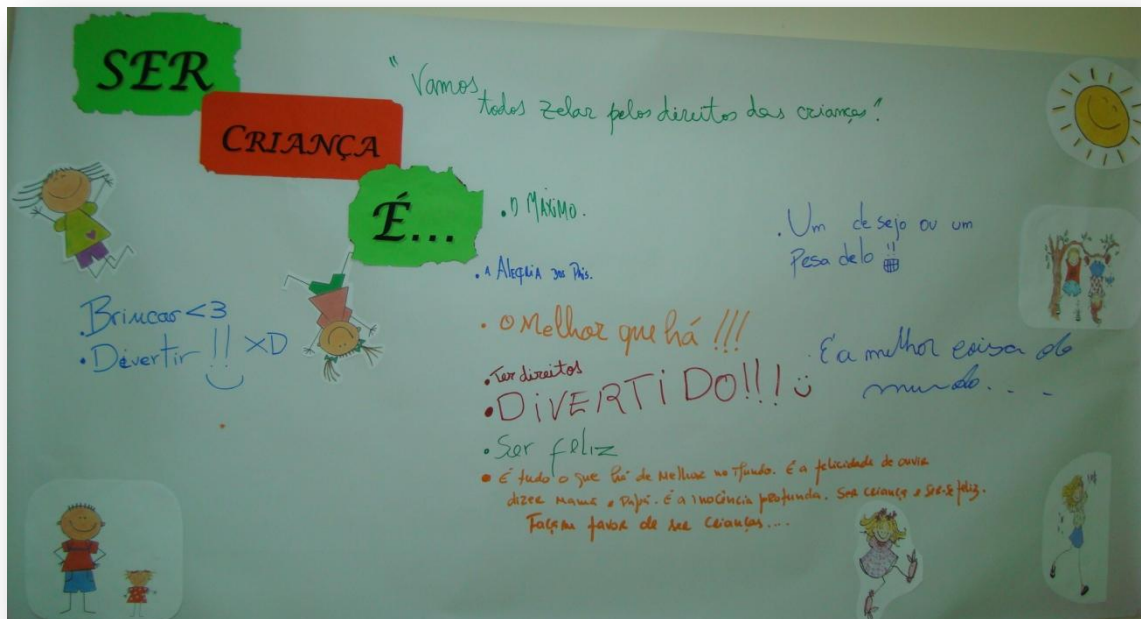 SER
CRIANÇA
É...
"Vamos
todos zelar pelos direitos das crianças!
• O MÁXIMO.
• A ALEGRIA DOS PAIS.
• O Melhor que há !!!
• Ter direitos
• DIVERTIDO!!!
• Ser feliz
• É tudo o que há de Melhor no Mundo. É a felicidade de ouvir
dizer Mamã e Papá. É a inocência profunda. Ser criança é ser-se feliz.
Façam favor de ser crianças....
. Um desejo ou um
Pesadelo !!
. É a melhor coisa do
mundo...
Brincar <3
• Divertir !! XD